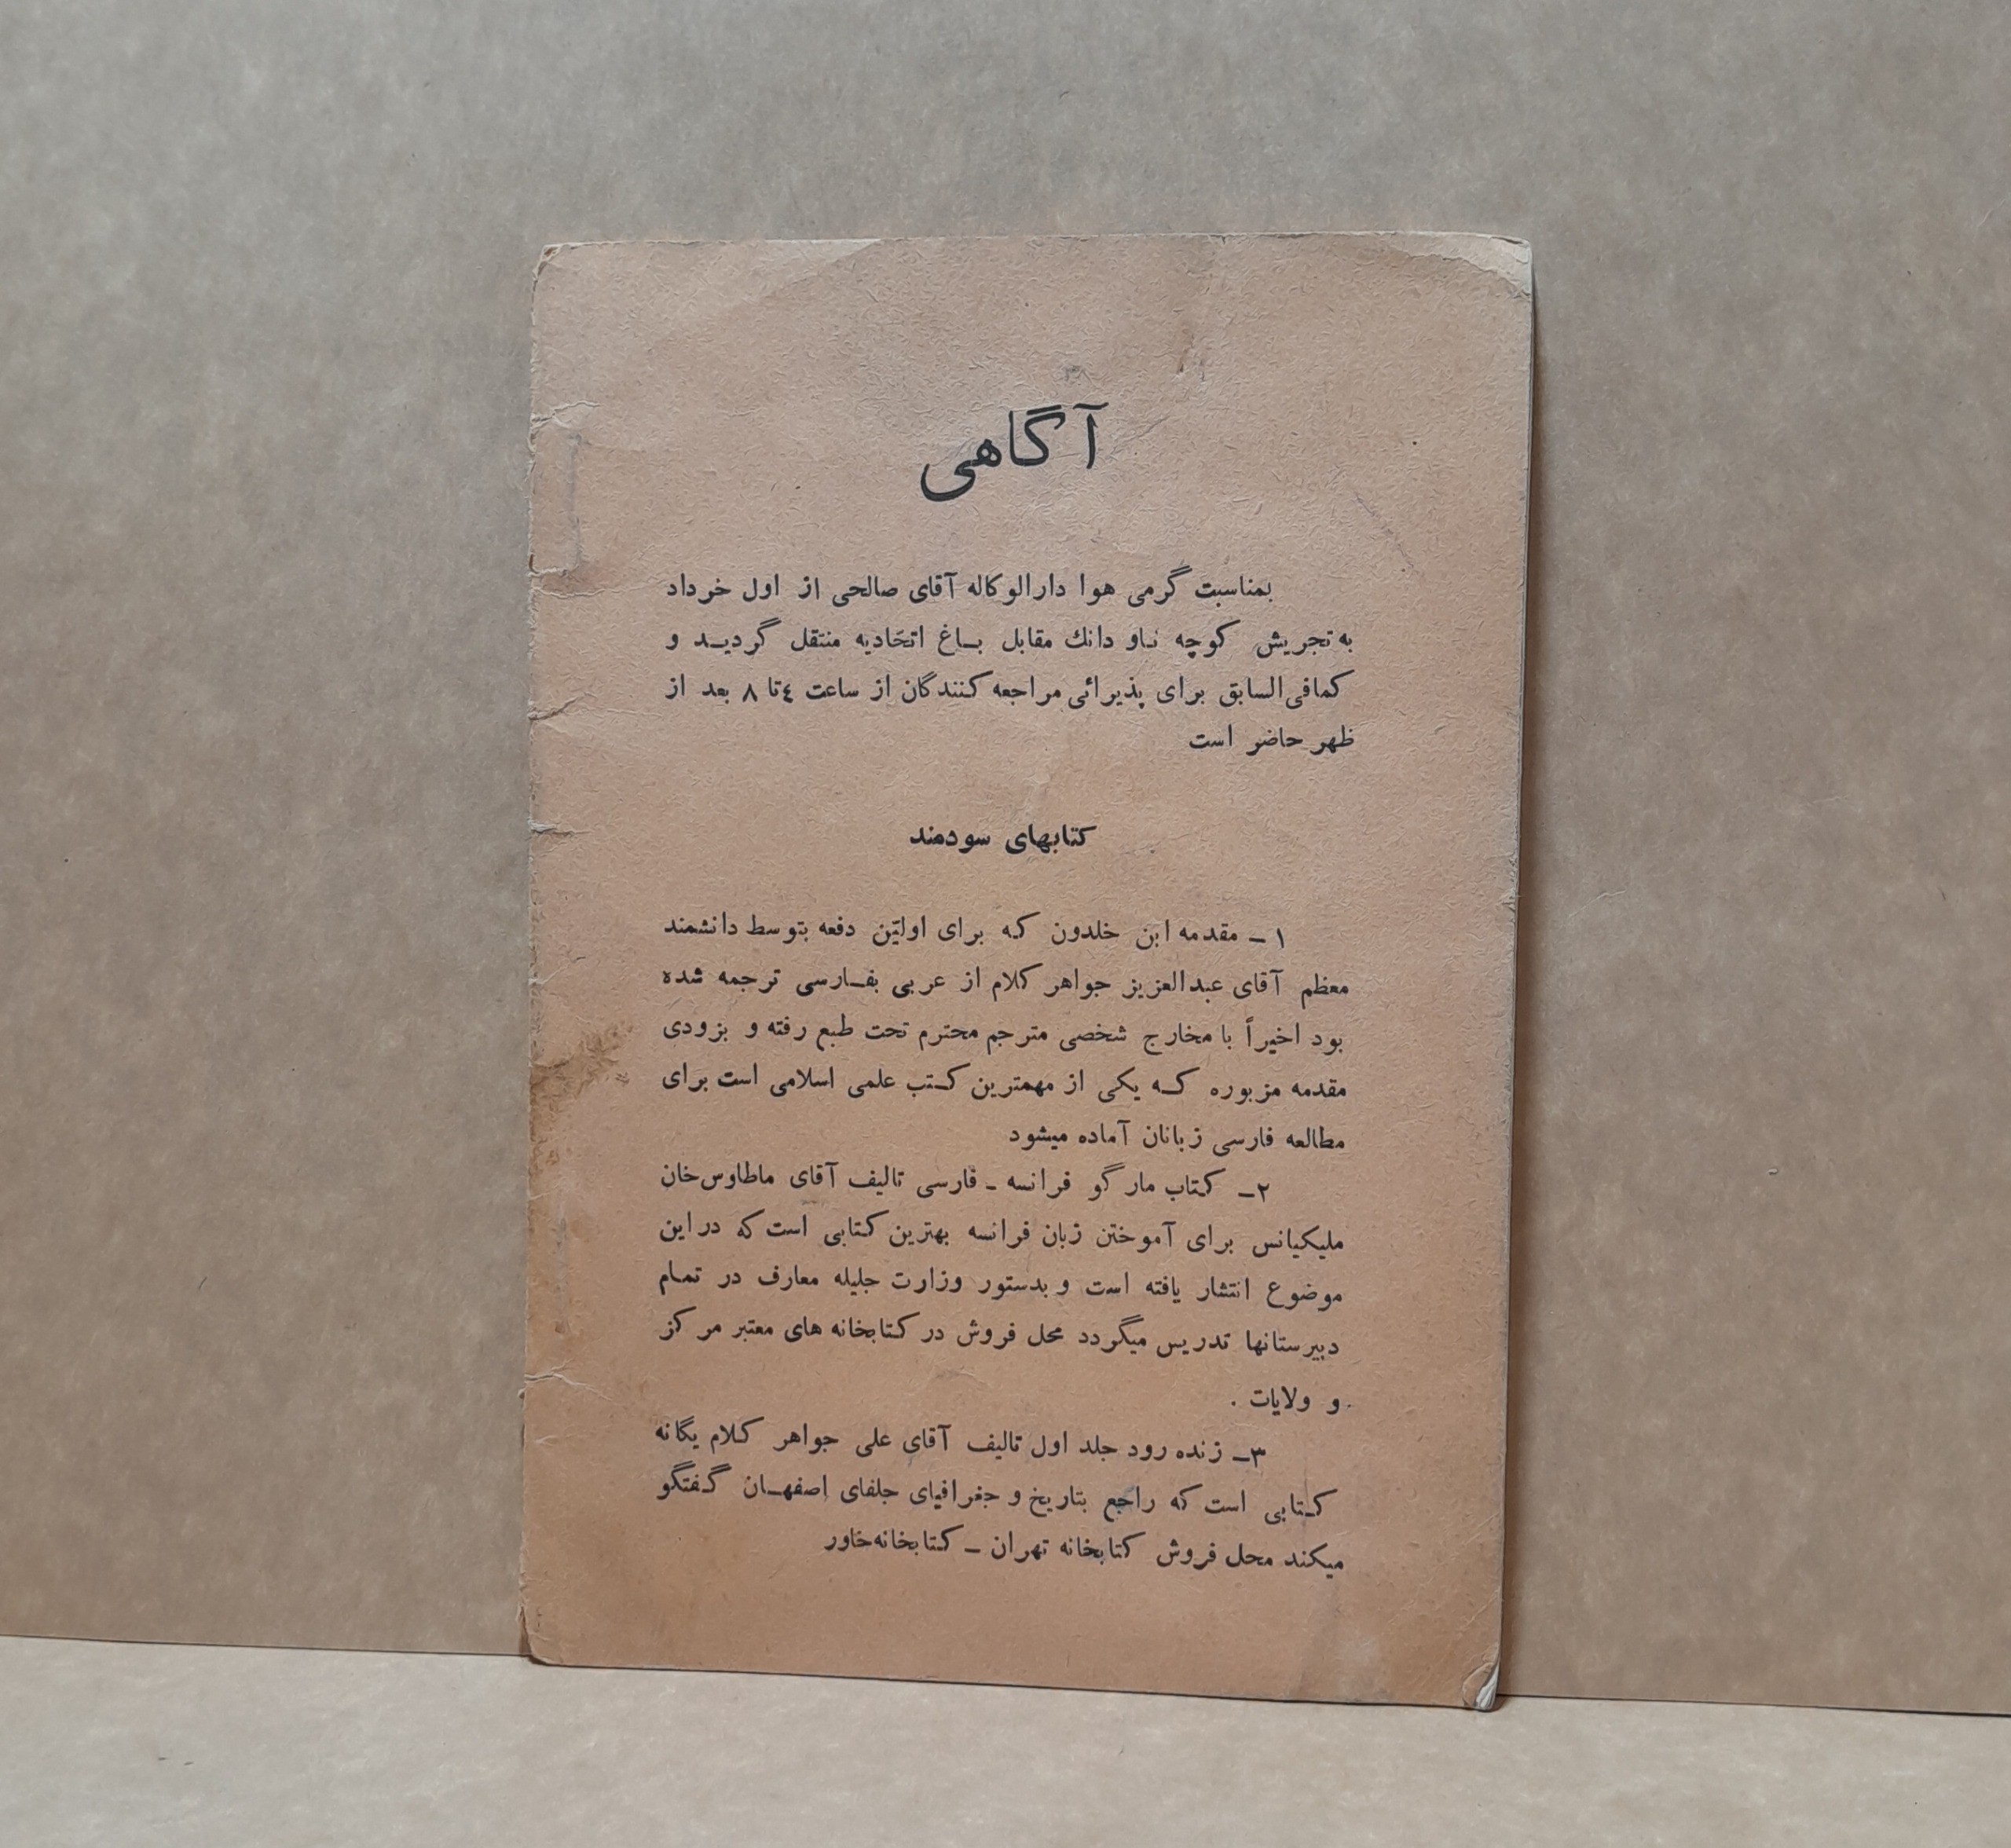 آگاهی
بمناسبت گرمی هوا دارالوکاله آقای صالحی از اول خرداد
به تجریش کوچه ناو دانك مقابل بــاغ اتحادیه منتقل گردیــد و
کمافی‌السابق برای پذیرائی مراجعه کنندگان از ساعت ٤ تا ٨ بعد از
ظهر حاضر است
کتابهای سودمند
١ــ مقدمه ابن خلدون که برای اولیّن دفعه بتوسط دانشمند
معظم آقای عبدالعزیز جواهر کلام از عربی بفــارسی ترجمه شده
بود اخیراً با مخارج شخصی مترجم محترم تحت طبع رفته و بزودی
مقدمه مزبوره کــه یکی از مهمترین کـتب علمی اسلامی است برای
مطالعه فارسی زبانان آماده میشود
٢ــ کتاب مارگو فرانسه ـ فارسی تالیف آقای ماطاوس‌خان
ملیکیانس برای آموختن زبان فرانسه بهترین کـتابی است که در این
موضوع انتشار یافته است و بدستور وزارت جلیله معارف در تمـام
دبیرستانها تدریس میگردد محل فروش در کـتابخانه های معتبر مرکز
و ولایات .
٣ــ زنده رود جلد اول تالیف آقای علی جواهر کـلام یگانه
کـتابی است که راجع بتاریخ و جغرافیای جلفای اصفهــان گـفتگو
میکند محل فروش کتابخانه تهران ــ کـتابخانه‌خاور